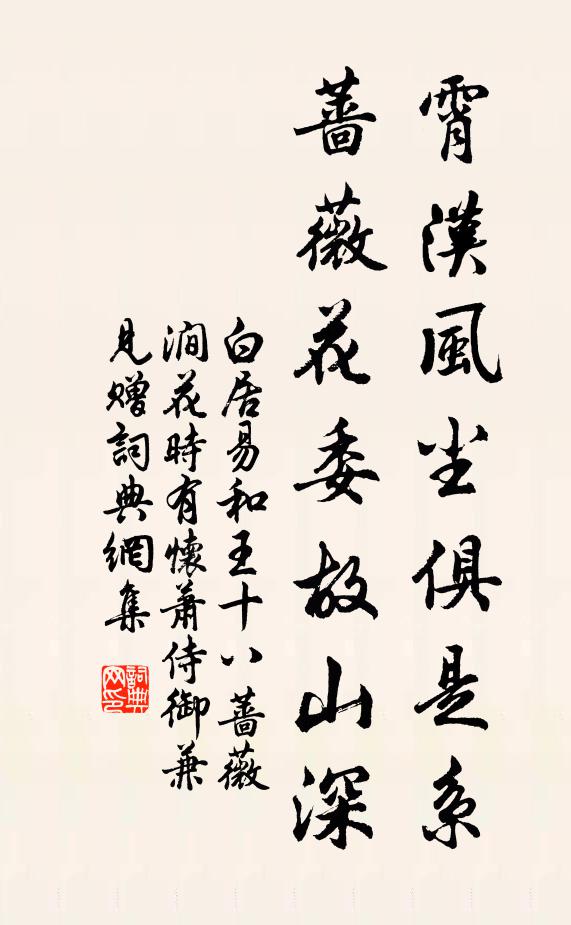 霄漢風尘俱是系
薔薇花委故山深
白居易和王十八薔薇
澗花時有懷蕭侍御兼
見贈詞典網集
詞典
网印